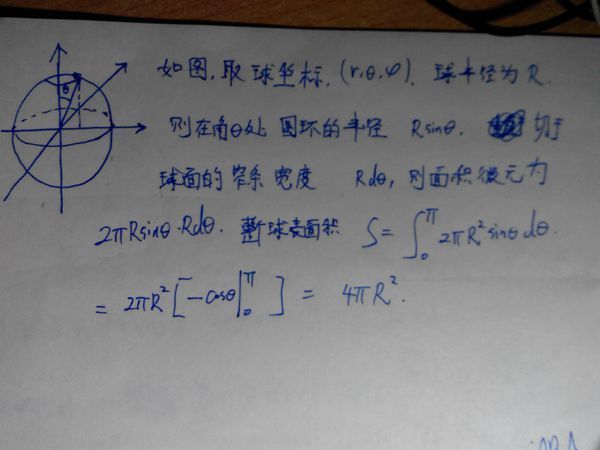 如图,取球坐标,(r,θ,φ).球半径为R.
θ
则在角θ处圆环的半径 Rsinθ. 切于
球面的窄条宽度 Rdθ,则面积微元为
2πRsinθ·Rdθ. 整球表面积 S=∫₀^π 2πR²sinθdθ.
= 2πR²[-cosθ|₀^π] = 4πR².